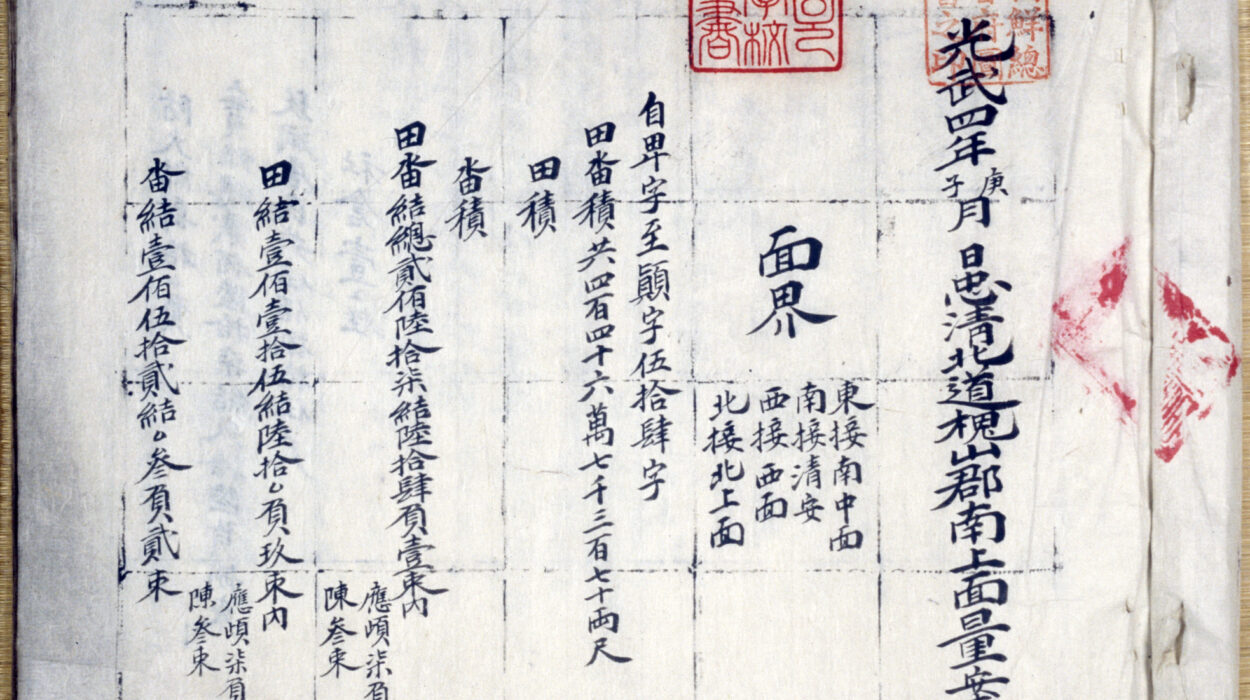 光武四年庚子月 日忠清北道槐山郡南上面量案
面界
東接南中面
南接清安
西接西面
北接北上面
自卑字至顚字伍拾肆字
田畓積共四百四十六萬七千三百七十兩尺
田積
畓積
田畓結總貳佰陸拾柒結陸拾肆負壹束內
應頉柒負
陳叄束
田結壹佰壹拾伍結陸拾負玖束內
應頉柒負
陳叄束
畓結壹佰伍拾貳結叄負貳束